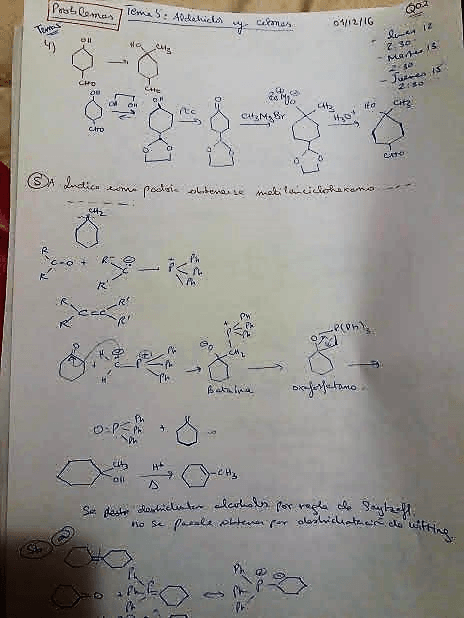 Problemas Tema 5: Aldehidos y cetonas 01/12/16
Tema 5
- Lunes 12
2:30
- Martes 13
2:30
- Jueves 15
2:30
4)
OH
CHO
HO CH3
OH
CHO
OH OH
OH
O O
PCC
O
O O
CH3MgBr
CH3
O O
H3O+
HO CH3
CHO
5) A Indica como podría obtenerse metilenciclohexano
CH2
R
R' C=O + R C P Ph
Ph
Ph
R
R' C=C R'
R'
O
+ H C P Ph
H Ph
Ph
O CH2
P Ph
Ph
Ph
O P(Ph)3
Betaina oxafosfetano
O=P Ph
Ph
Ph +
CH3
OH H+
Δ CH3
deshidratar alcoholes por regla de Saytzeff,
no se puede obtener por deshidratación de wittig.
5b) a)
=O + Ph
Ph P
Ph
Ph
Ph P
Ph